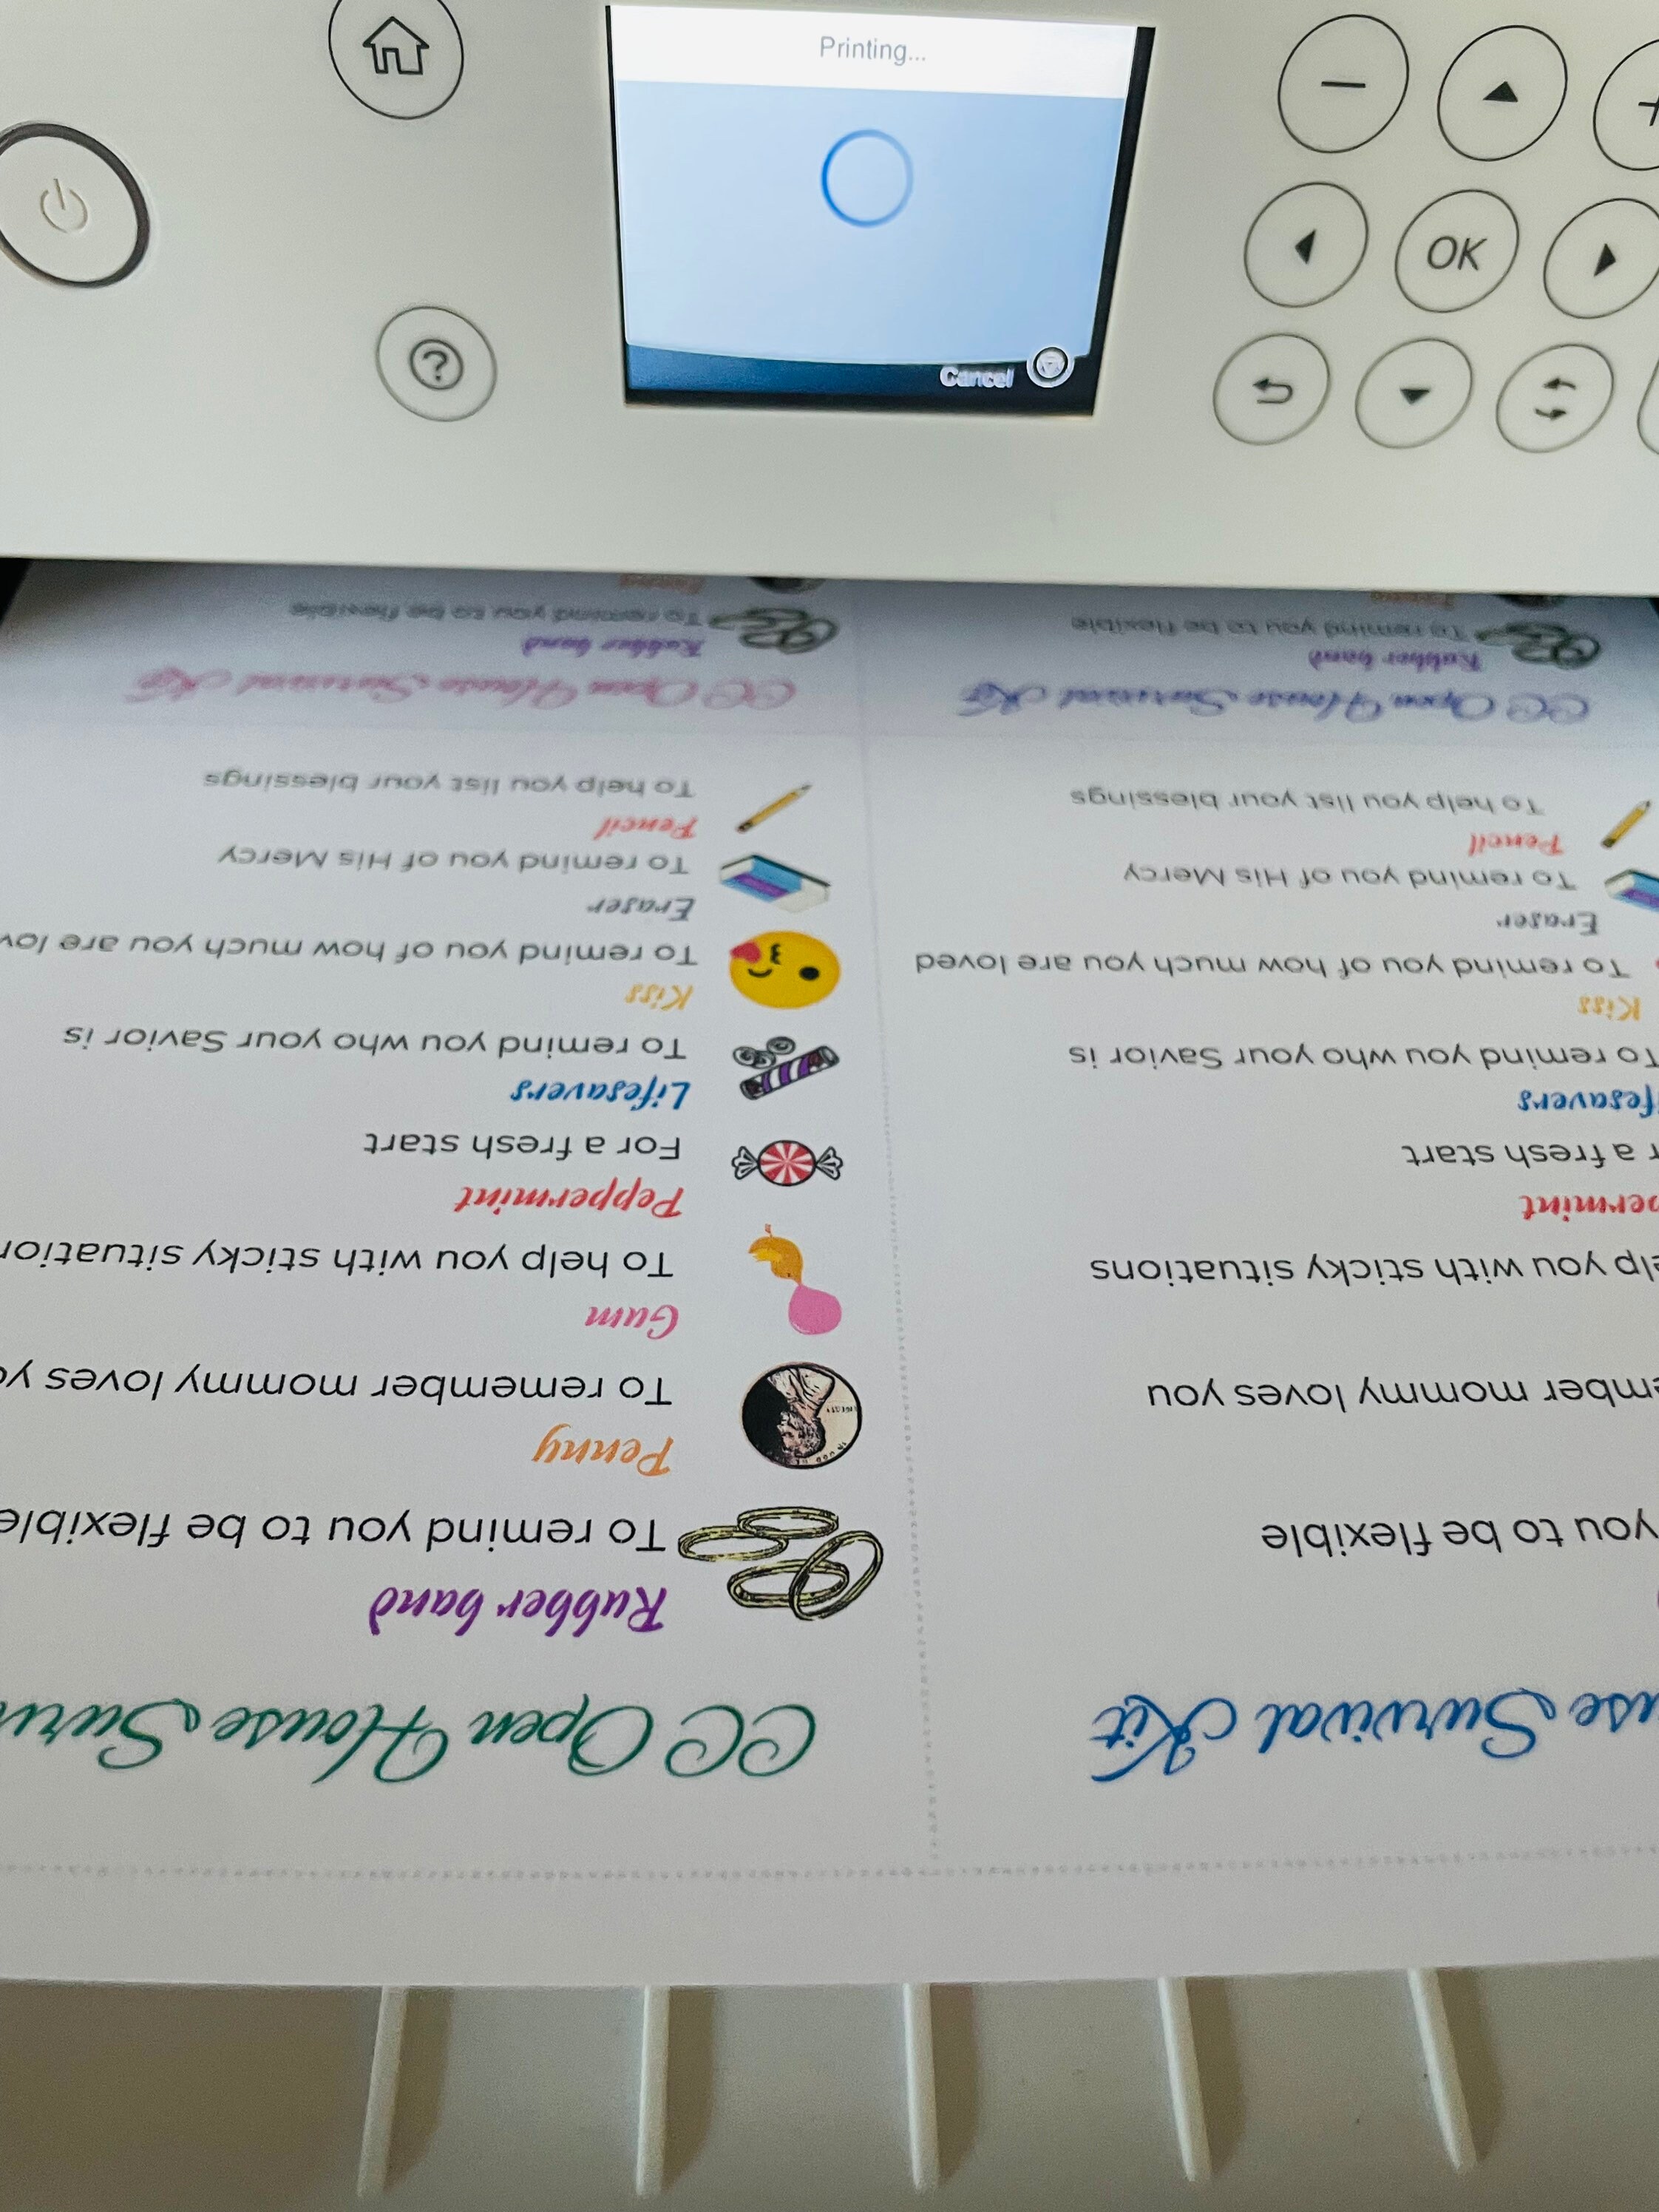 Printing...
Cancel
OK
CC Open House Surv
Rubber band
To remind you to be flexible
Penny
To remember mommy loves yo
Gum
To help you with sticky situation
Peppermint
For a fresh start
Lifesavers
To remind you who your Savior is
Kiss
To remind you of how much you are lov
Eraser
To remind you of His Mercy
Pencil
To help you list your blessings
use Survival Kit
you to be flexible
mber mommy loves you
elp you with sticky situations
ermint
r a fresh start
fesavers
To remind you who your Savior is
Kiss
To remind you of how much you are loved
Eraser
To remind you of His Mercy
Pencil
To help you list your blessings
CC Open House Survival Kit
Rubber band
To remind you to be flexible
CC Open House Survival Kit
Rubber band
To remind you to be flexible